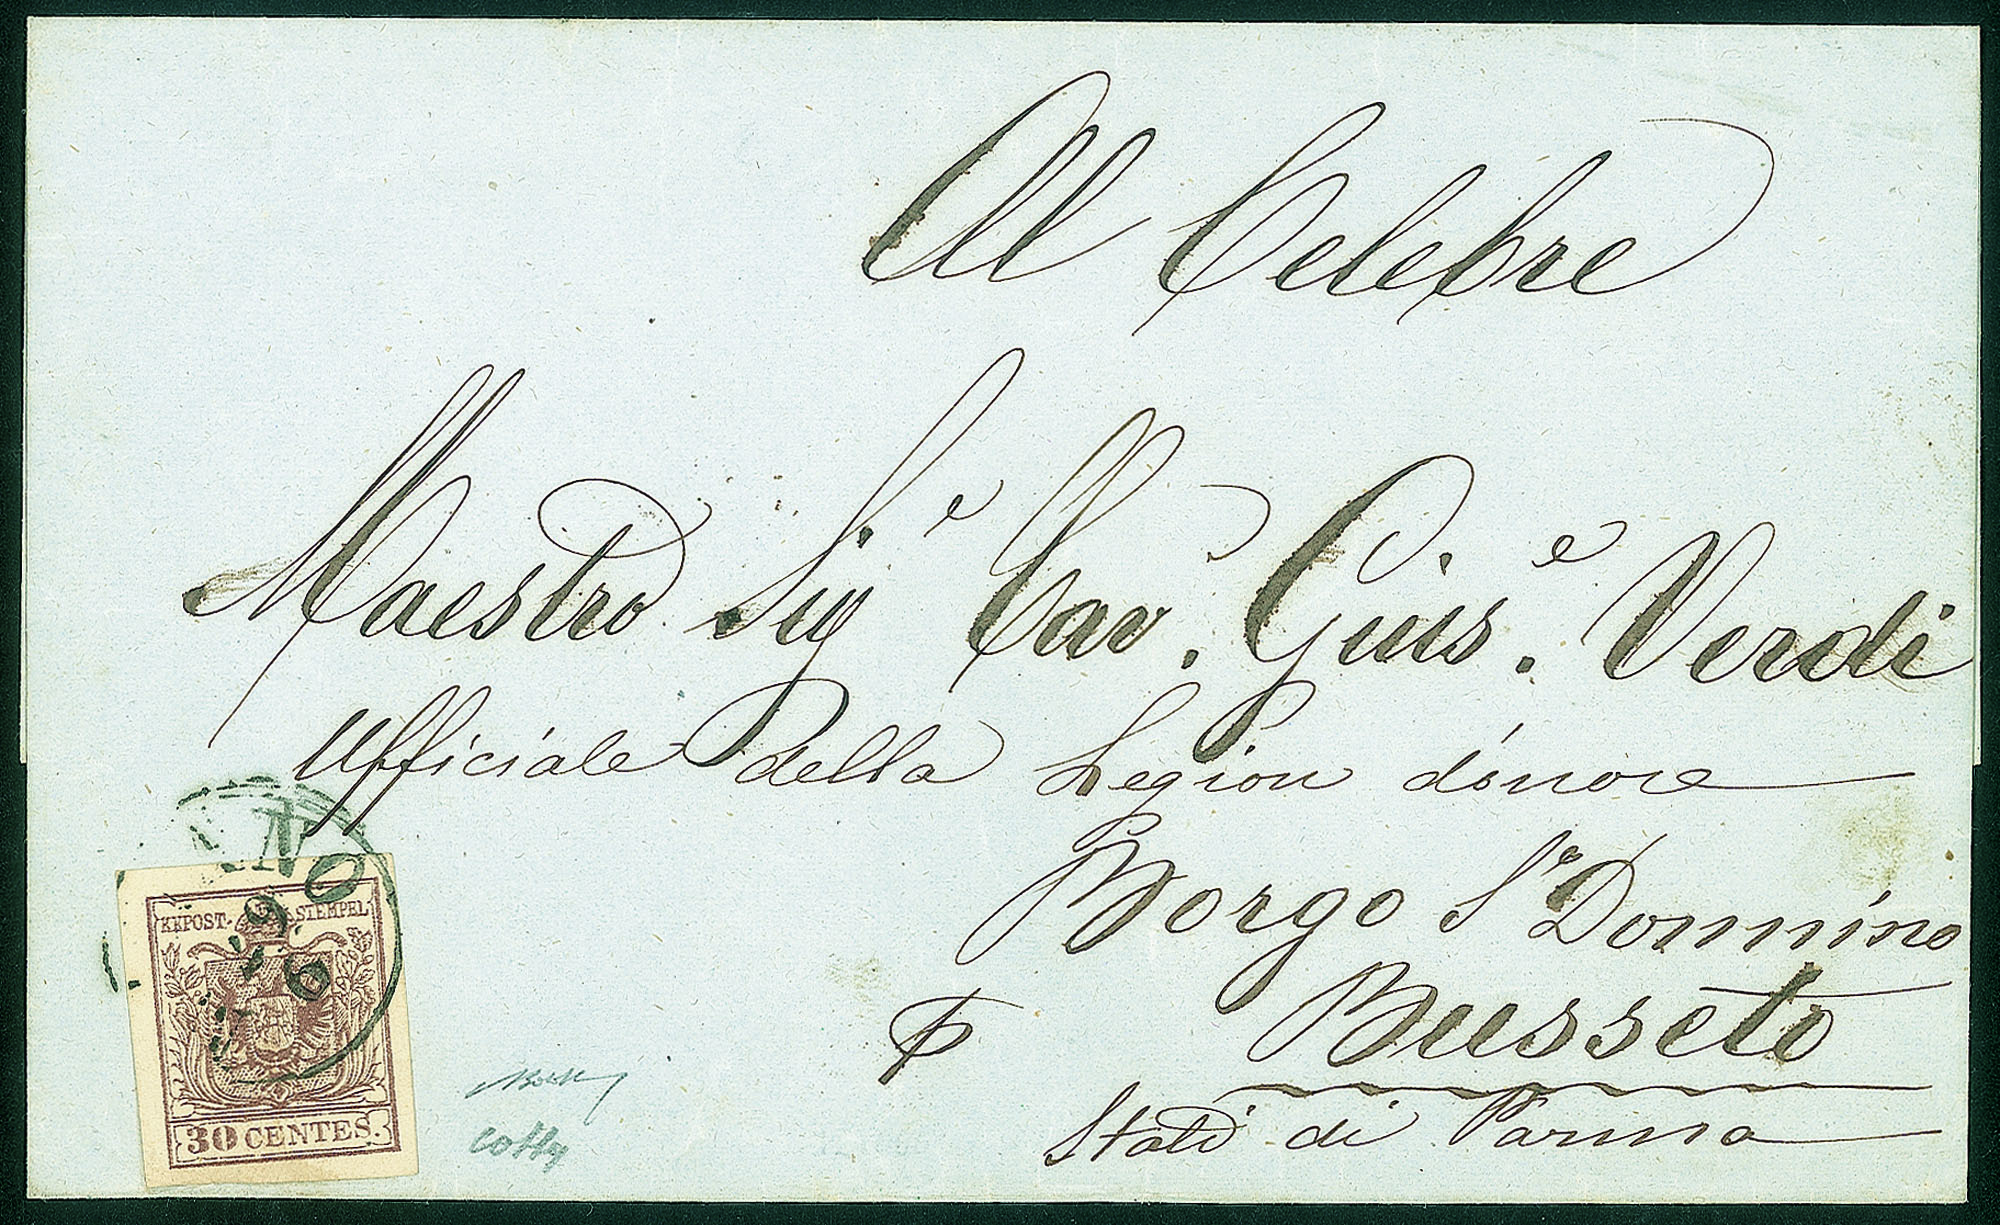 Al Celebre
Maestro Sig.e Cav. Gius.e Verdi
Ufficiale della Legion d'onore
Borgo Sn Donnino
p Busseto
Stati di Parma
NO
KKPOST-STEMPEL
30 CENTES.